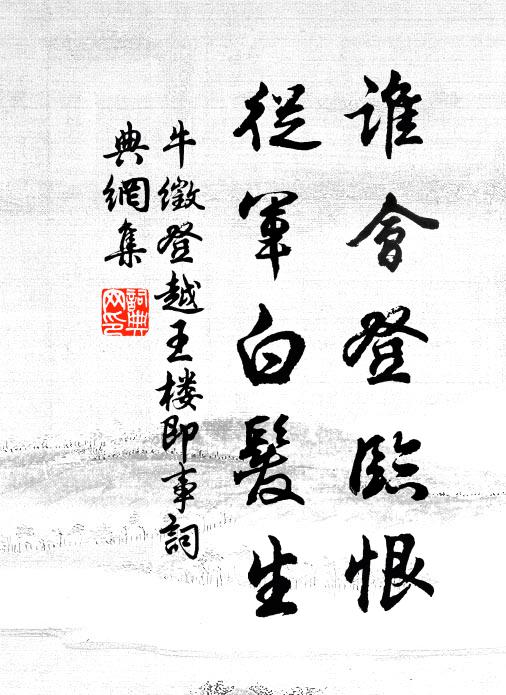 谁會登臨恨
從軍白髮生
牛徵登越王楼即事詞
典網集
詞典网印